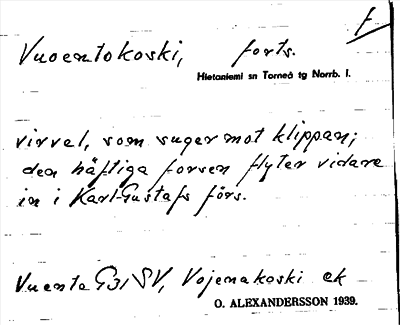 f.
Vuoentokoski, forts.
Hietaniemi sn Torneå tg Norrb. l.
virvel, som suger mot klippan;
den häftiga forsen flyter vidare
in i Karl-Gustafs förs.
Vuenta G31 SV, Vojenakoski ek
O. ALEXANDERSSON 1939.